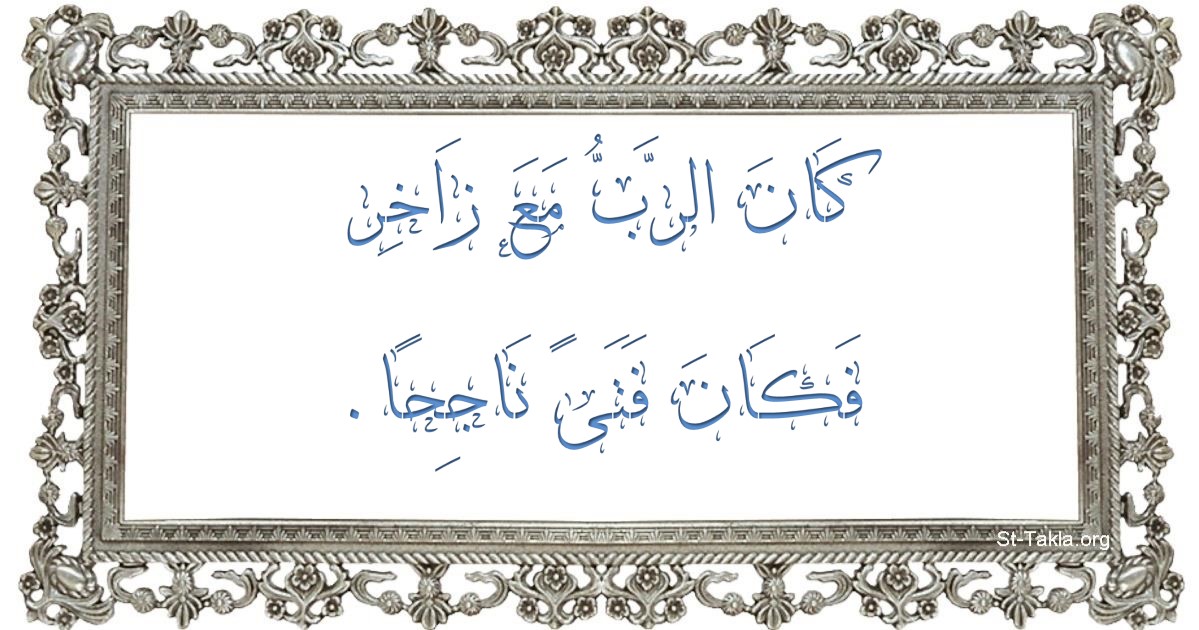 كَانَ الرَّبُّ مَعَ زَاخِرِ
فَكَانَ فَتَىً نَاجِحًا .
St-Takla.org